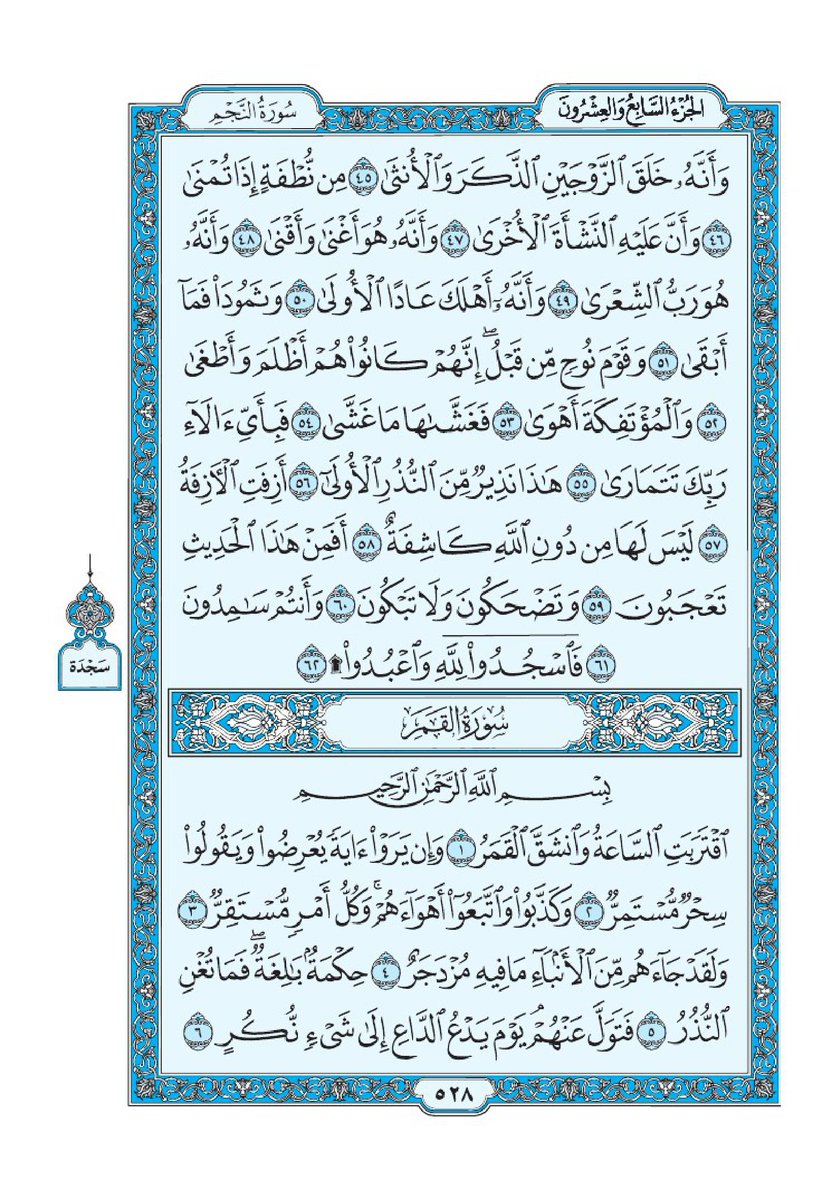 الجزء السابع والعشرون
سورة النجم
وَأَنَّهُۥ خَلَقَ ٱلزَّوْجَيْنِ ٱلذَّكَرَ وَٱلْأُنثَىٰ ٤٥ مِن نُّطْفَةٍ إِذَا تُمْنَىٰ
٤٦ وَأَنَّ عَلَيْهِ ٱلنَّشْأَةَ ٱلْأُخْرَىٰ ٤٧ وَأَنَّهُۥ هُوَ أَغْنَىٰ وَأَقْنَىٰ ٤٨ وَأَنَّهُۥ
هُوَ رَبُّ ٱلشِّعْرَىٰ ٤٩ وَأَنَّهُۥٓ أَهْلَكَ عَادًا ٱلْأُولَىٰ ٥٠ وَثَمُودَا۟ فَمَآ
أَبْقَىٰ ٥١ وَقَوْمَ نُوحٍ مِّن قَبْلُ ۖ إِنَّهُمْ كَانُوا۟ هُمْ أَظْلَمَ وَأَطْغَىٰ
٥٢ وَٱلْمُؤْتَفِكَةَ أَهْوَىٰ ٥٣ فَغَشَّىٰهَا مَا غَشَّىٰ ٥٤ فَبِأَىِّ ءَالَآءِ
رَبِّكَ تَتَمَارَىٰ ٥٥ هَٰذَا نَذِيرٌ مِّنَ ٱلنُّذُرِ ٱلْأُولَىٰٓ ٥٦ أَزِفَتِ ٱلْـَٔازِفَةُ
٥٧ لَيْسَ لَهَا مِن دُونِ ٱللَّهِ كَاشِفَةٌ ٥٨ أَفَمِنْ هَٰذَا ٱلْحَدِيثِ
تَعْجَبُونَ ٥٩ وَتَضْحَكُونَ وَلَا تَبْكُونَ ٦٠ وَأَنتُمْ سَٰمِدُونَ
٦١ فَٱسْجُدُوا۟ لِلَّهِ وَٱعْبُدُوا۟ ۩ ٦٢
سجدة
سورة القمر
بِسْمِ ٱللَّهِ ٱلرَّحْمَٰنِ ٱلرَّحِيمِ
ٱقْتَرَبَتِ ٱلسَّاعَةُ وَٱنشَقَّ ٱلْقَمَرُ ١ وَإِن يَرَوْا۟ ءَايَةً يُعْرِضُوا۟ وَيَقُولُوا۟
سِحْرٌ مُّسْتَمِرٌّ ٢ وَكَذَّبُوا۟ وَٱتَّبَعُوٓا۟ أَهْوَآءَهُمْ ۚ وَكُلُّ أَمْرٍ مُّسْتَقِرٌّ ٣
وَلَقَدْ جَآءَهُم مِّنَ ٱلْأَنۢبَآءِ مَا فِيهِ مُزْدَجَرٌ ٤ حِكْمَةٌۢ بَٰلِغَةٌ ۖ فَمَا تُغْنِ
ٱلنُّذُرُ ٥ فَتَوَلَّ عَنْهُمْ ۘ يَوْمَ يَدْعُ ٱلدَّاعِ إِلَىٰ شَىْءٍ نُّكُرٍ ٦
٥٢٨